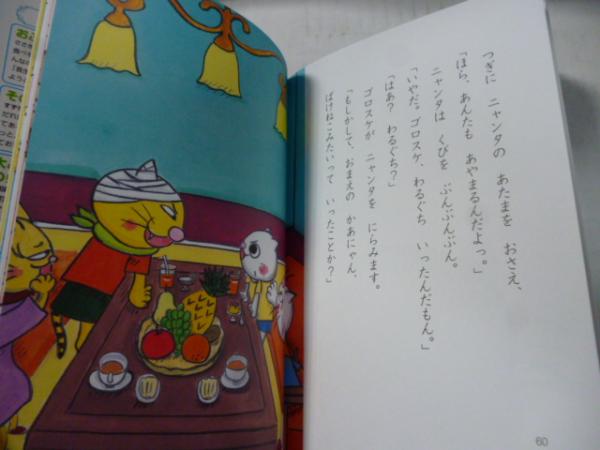 つぎに ニャンタの あたまを おさえ、
「ほら、あんたも あやまるんだよっ。」
ニャンタは くびを ぶんぶんぶん。
「いやだ。ゴロスケ、わるぐち いったんだもん。」
「はあ? わるぐち?」
ゴロスケが ニャンタを にらみます。
「もしかして、おまえの かあにゃん、
ばけねこみたいって いったことか?」
60